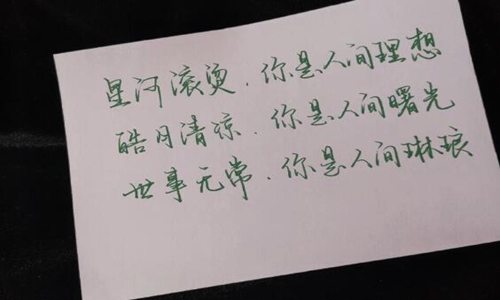 星河滚烫.你是人间理想
皓月清凉.你是人间曙光
世事无常.你是人间琳琅